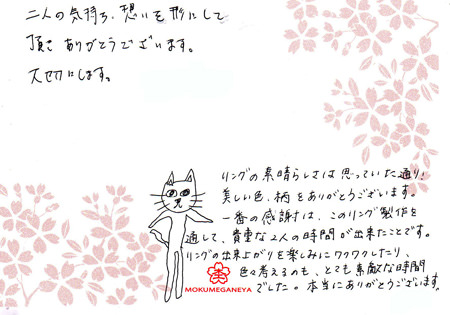 二人の気持ち、想いを形にして
頂き ありがとうございます。
大切にします。
リングの素晴らしさは思っていた通り!
美しい色、柄をありがとうございます。
一番の感謝は、このリング製作を
通して、貴重な2人の時間が出来たことです。
リングの出来上がりを楽しみにワクワクしたり、
色々考えるのも、とても素敵な時間
でした。本当にありがとうございます。
MOKUMEGANEYA